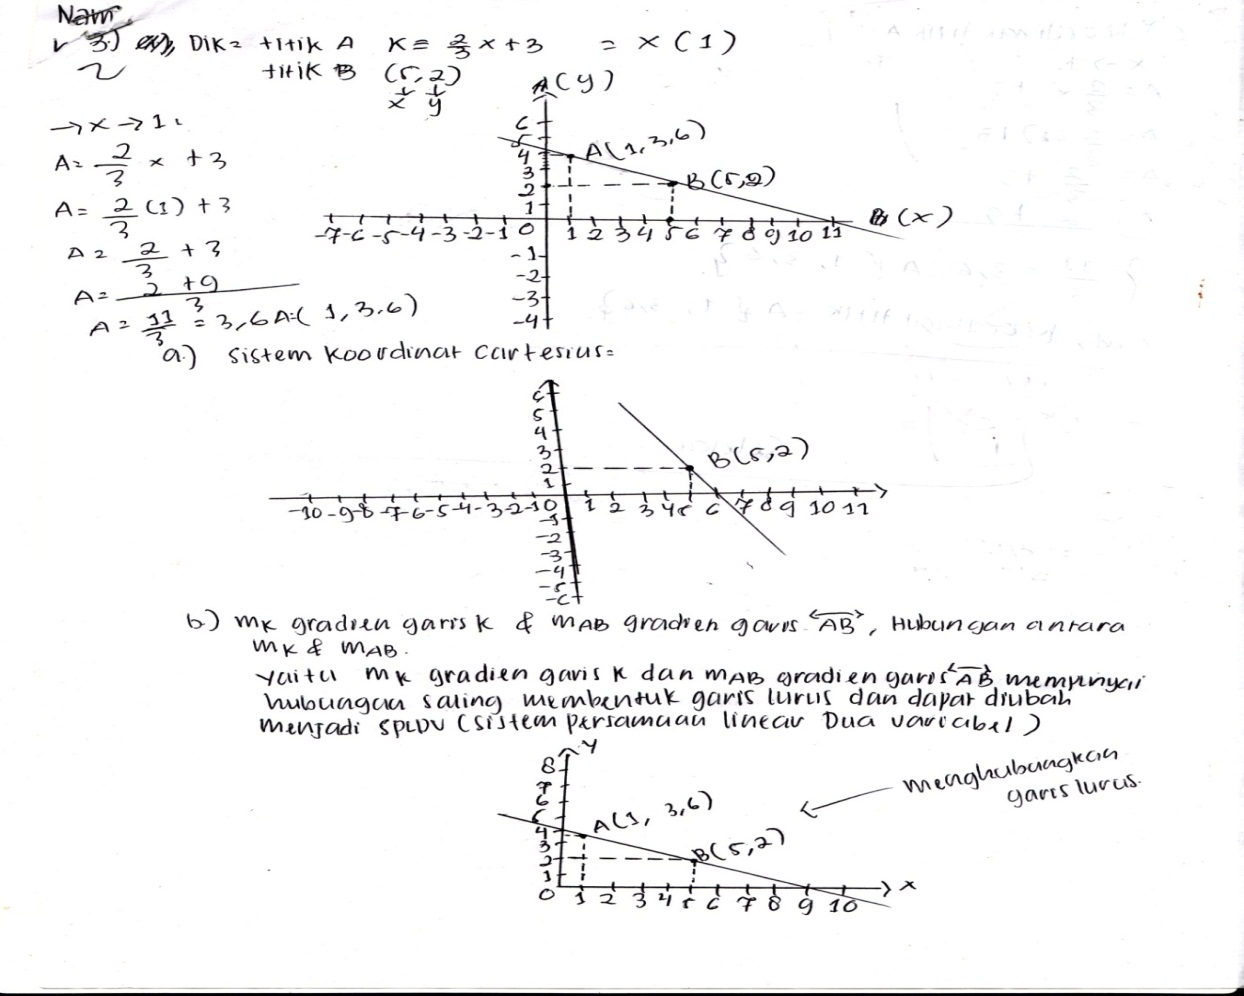 Nam
3.) Dik = titik A K = 2/3 x + 3 = x (1)
titik B (5,2)
x y
→ x → 1
A = 2/3 x + 3
A = 2/3 (1) + 3
A = 2/3 + 3
A = 2 + 9 / 3
A = 11/3 = 3,6 A:( 1, 3,6)
A (y)
6
5
4
3
2
1
A(1, 3,6)
B(5,2)
B (x)
-7 -6 -5 -4 -3 -2 -1 0 1 2 3 4 5 6 7 8 9 10 11
-1
-2
-3
-4
a.) sistem koordinat cartesius =
6
5
4
3
2
1
B(5,2)
-10 -9 -8 -7 -6 -5 -4 -3 -2 -1 0 1 2 3 4 5 6 7 8 9 10 11
-1
-2
-3
-4
-5
-6
b.) mK gradien garis K & mAB gradien garis AB, Hubungan antara
mK & mAB.
yaitu mK gradien garis K dan mAB gradien garis AB mempunyai
hubungan saling membentuk garis lurus dan dapat diubah
menjadi SPLDV (sistem persamaan linear Dua variabel)
y
8
7
6
5
4
3
2
1
A(1, 3,6)
B(5,2)
menghubungkan
garis lurus.
0 1 2 3 4 5 6 7 8 9 10 x